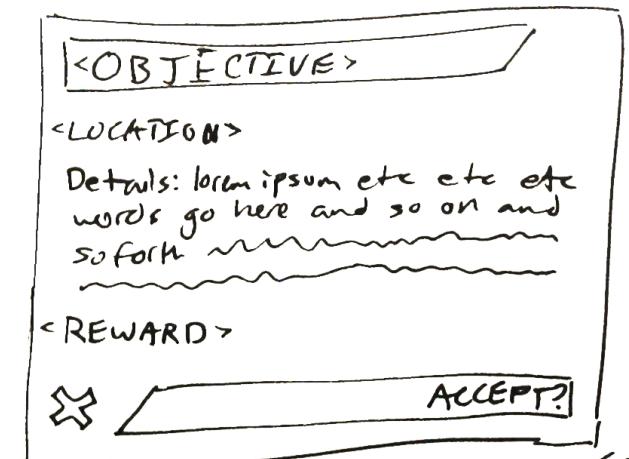 <OBJECTIVE>
<LOCATION>
Details: lorem ipsum etc etc etc
words go here and so on and
so forth
<REWARD>
ACCEPT?